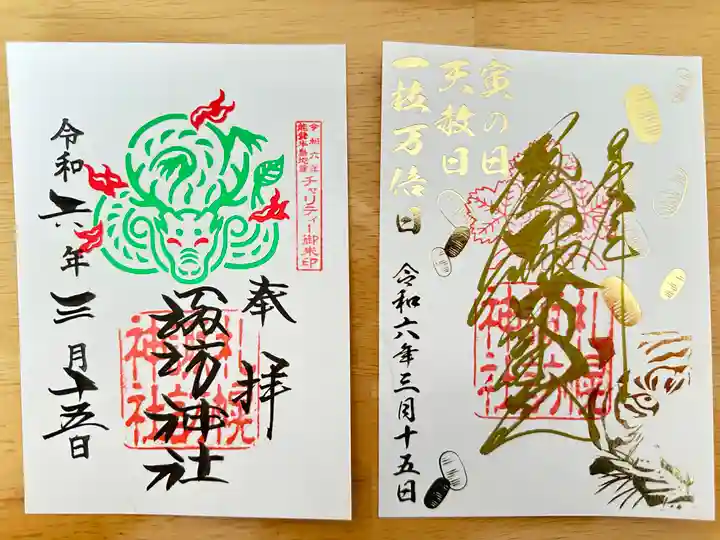 奉拝
諏訪神社
令和六年三月十五日
令和六年
能登半島地震
チャリティー御朱印
札幌
諏訪
神社
寅の日
天赦日
一粒万倍日
令和六年三月十五日
札幌
諏訪
神社